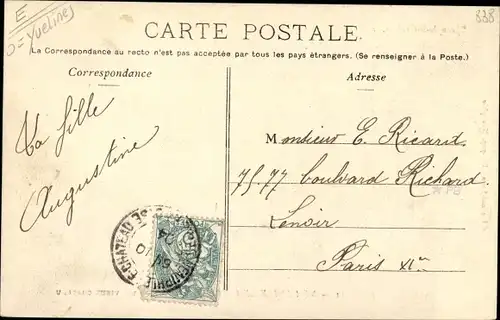 E
0 = Yvelines
338
CARTE POSTALE
La Correspondance au recto n'est pas acceptée par tous les pays étrangers. (Se renseigner à la Poste.)
Correspondance
Adresse
Ta fille
Augustine
Monsieur E. Ricard
75-77 boulevard Richard
Lenoir
Paris XIe